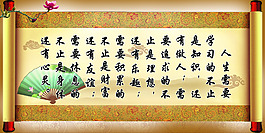 人生需要
学习的不止
有做人；需
要追求的不
止是理想，
还有乐趣；
需要积累的
不止是财富
还有友谊；
需要休息的
不止是身体
还有心灵